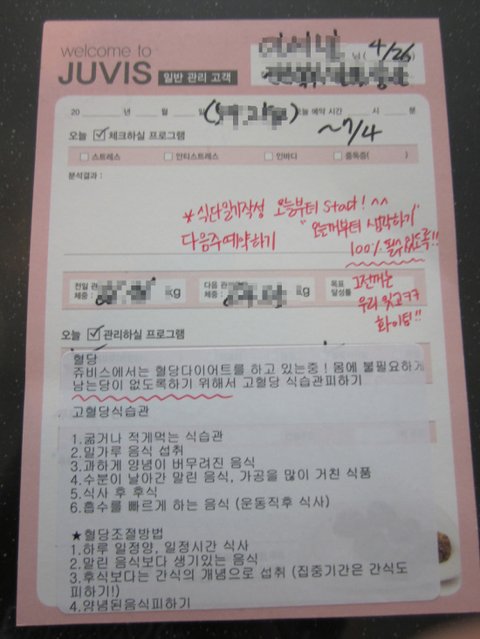 welcome to
JUVIS 일반 관리 고객
님 (4/26)
20 년 월 일 오늘 예약 시간 시 분
~7/4
오늘 체크하실 프로그램
스트레스 안티스트레스 인바디 중독증( )
분석결과 :
*식단일기작성 오늘부터 Start! ^^
다음주예약하기 "오늘꺼부터 생각하기"
100% 필수있도록!!
전일 관
체중 : kg
다음 관
체중 : kg
목표
달성률
그전꺼는
우리 잊고ㅋㅋ
화이팅!!
오늘 관리하실 프로그램
혈당
쥬비스에서는 혈당다이어트를 하고 있는중! 몸에 불필요하게
남는당이 없도록하기 위해서 고혈당 식습관피하기
고혈당식습관
1.굶거나 적게먹는 식습관
2.밀가루 음식 섭취
3.과하게 양념이 버무려진 음식
4.수분이 날아간 말린 음식, 가공을 많이 거친 식품
5.식사 후 후식
6.흡수를 빠르게 하는 음식 (운동직후 식사)
★혈당조절방법
1.하루 일정양, 일정시간 식사
2.말린 음식보다 생기있는 음식
3.후식보다는 간식의 개념으로 섭취 (집중기간은 간식도
피하기!)
4.양념된음식피하기